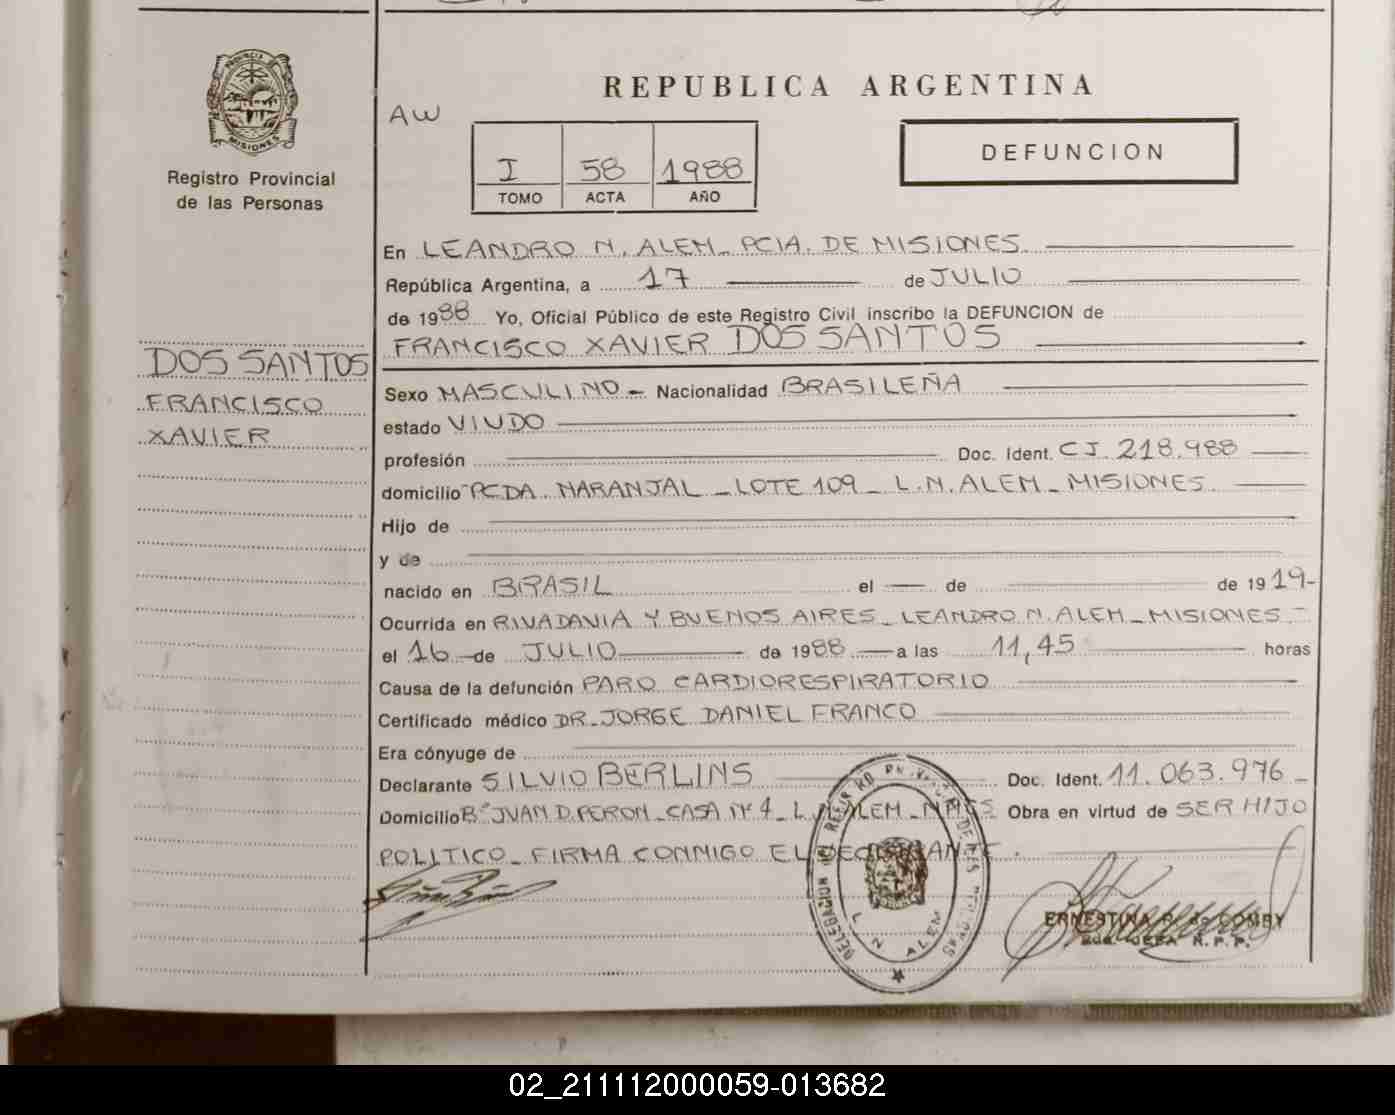 PROVINCIA DE
MISIONES
Registro Provincial
de las Personas
DOS SANTOS
FRANCISCO
XAVIER
REPUBLICA ARGENTINA
AW
I 58 1988
TOMO ACTA AÑO
DEFUNCION
En LEANDRO N. ALEM_ PCIA. DE MISIONES
República Argentina, a 17 de JULIO
de 1988 Yo, Oficial Público de este Registro Civil inscribo la DEFUNCION de
FRANCISCO XAVIER DOS SANTOS
Sexo MASCULINO - Nacionalidad BRASILEÑA
estado VIUDO
profesión Doc. Ident. CJ. 218.988
domicilio PCDA. NARANJAL _ LOTE 109 _ L.N. ALEM _ MISIONES
Hijo de
y de
nacido en BRASIL el de de 1919-
Ocurrida en RIVADAVIA Y BUENOS AIRES_ LEANDRO N. ALEM_ MISIONES.-
el 16 de JULIO de 1988 a las 11,45 horas
Causa de la defunción PARO CARDIORESPIRATORIO
Certificado médico DR. JORGE DANIEL FRANCO
Era cónyuge de
Declarante SILVIO BERLINS Doc. Ident. 11.063.976 _
Domicilio Bº JUAN D. PERON_ CASA Nº 4_ L.N. ALEM_ MNES Obra en virtud de SER HIJO
POLITICO_ FIRMA CONMIGO EL DECLARANTE.
DELEGACION DEL REGISTRO PROVINCIAL DE LAS PERSONAS
L N ALEM
ERNESTINA R. de COMBY
JEFA R. P. P.
02_211112000059-013682